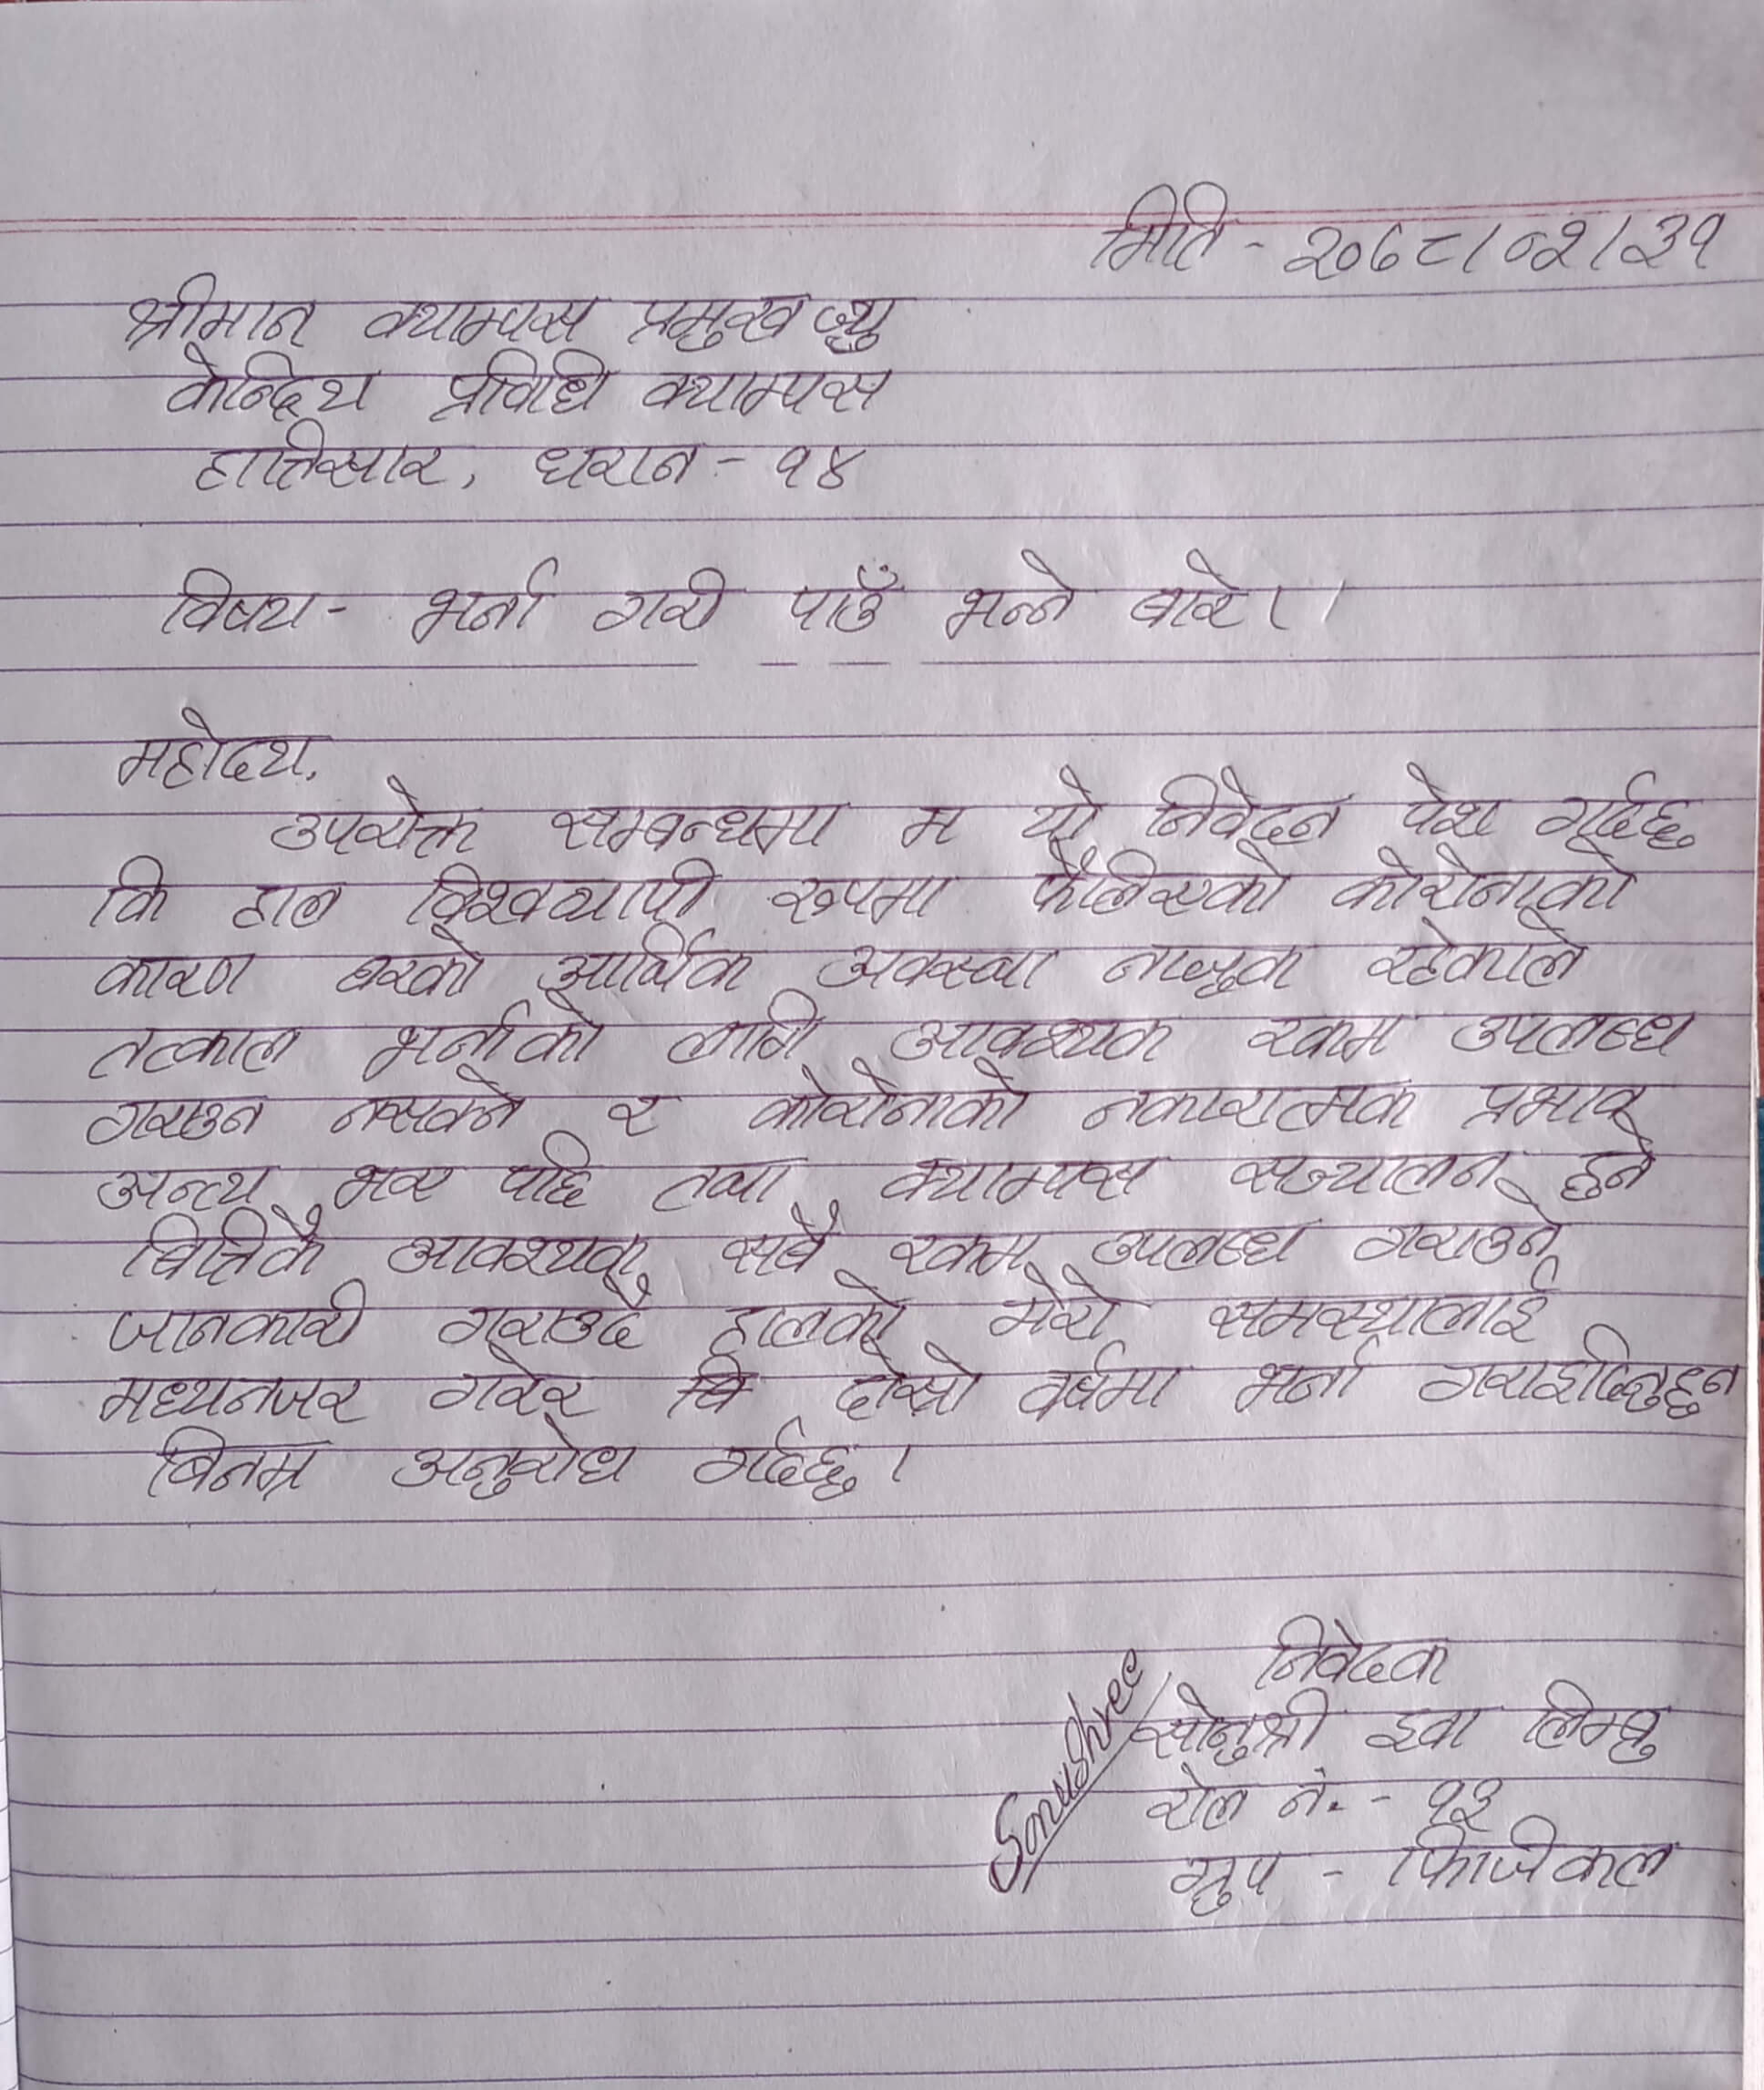 मिति - २०७८/०२/३१
श्रीमान क्याम्पस प्रमुख ज्यु
केन्दिय प्रविधि क्याम्पस
हात्तिसार, धरान - १४
विषय - भर्ना गरी पाउँ भन्ने बारे।।
महोदय,
उपरोक्त सम्बन्धमा म यो निवेदन पेश गर्दछु
कि हाल विश्वव्यापी रुपमा फैलिएको कोरोनाको
कारण घरको आर्थिक अवस्था नाजुक रहेकाले
तत्काल भर्नाको लागि आवश्यक रकम उपलब्ध
गराउन नसक्ने र कोरोनाको नकारात्मक प्रभाव
अन्त्य भए पछि तथा क्याम्पस सञ्चालन हुने
बित्तिकै आवश्यक सबै रकम उपलब्ध गराउने
जानकारी गराउदै हालको मेरो समस्यालाई
मध्यनजर गरेर दोस्रो वर्षमा भर्ना गराइदिनुहुन
बिनम्र अनुरोध गर्दछु।
निवेदक
Sonushree
सोनुश्री इवा लिम्बु
रोल नं. - १३
ग्रुप - फिजिकल